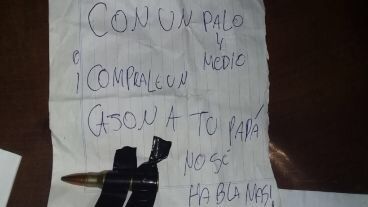 CON UN PALO
Y
MEDIO
O COMPRALE UN
CAJON A TU PAPÁ
NO SÉ
HABLA NASI